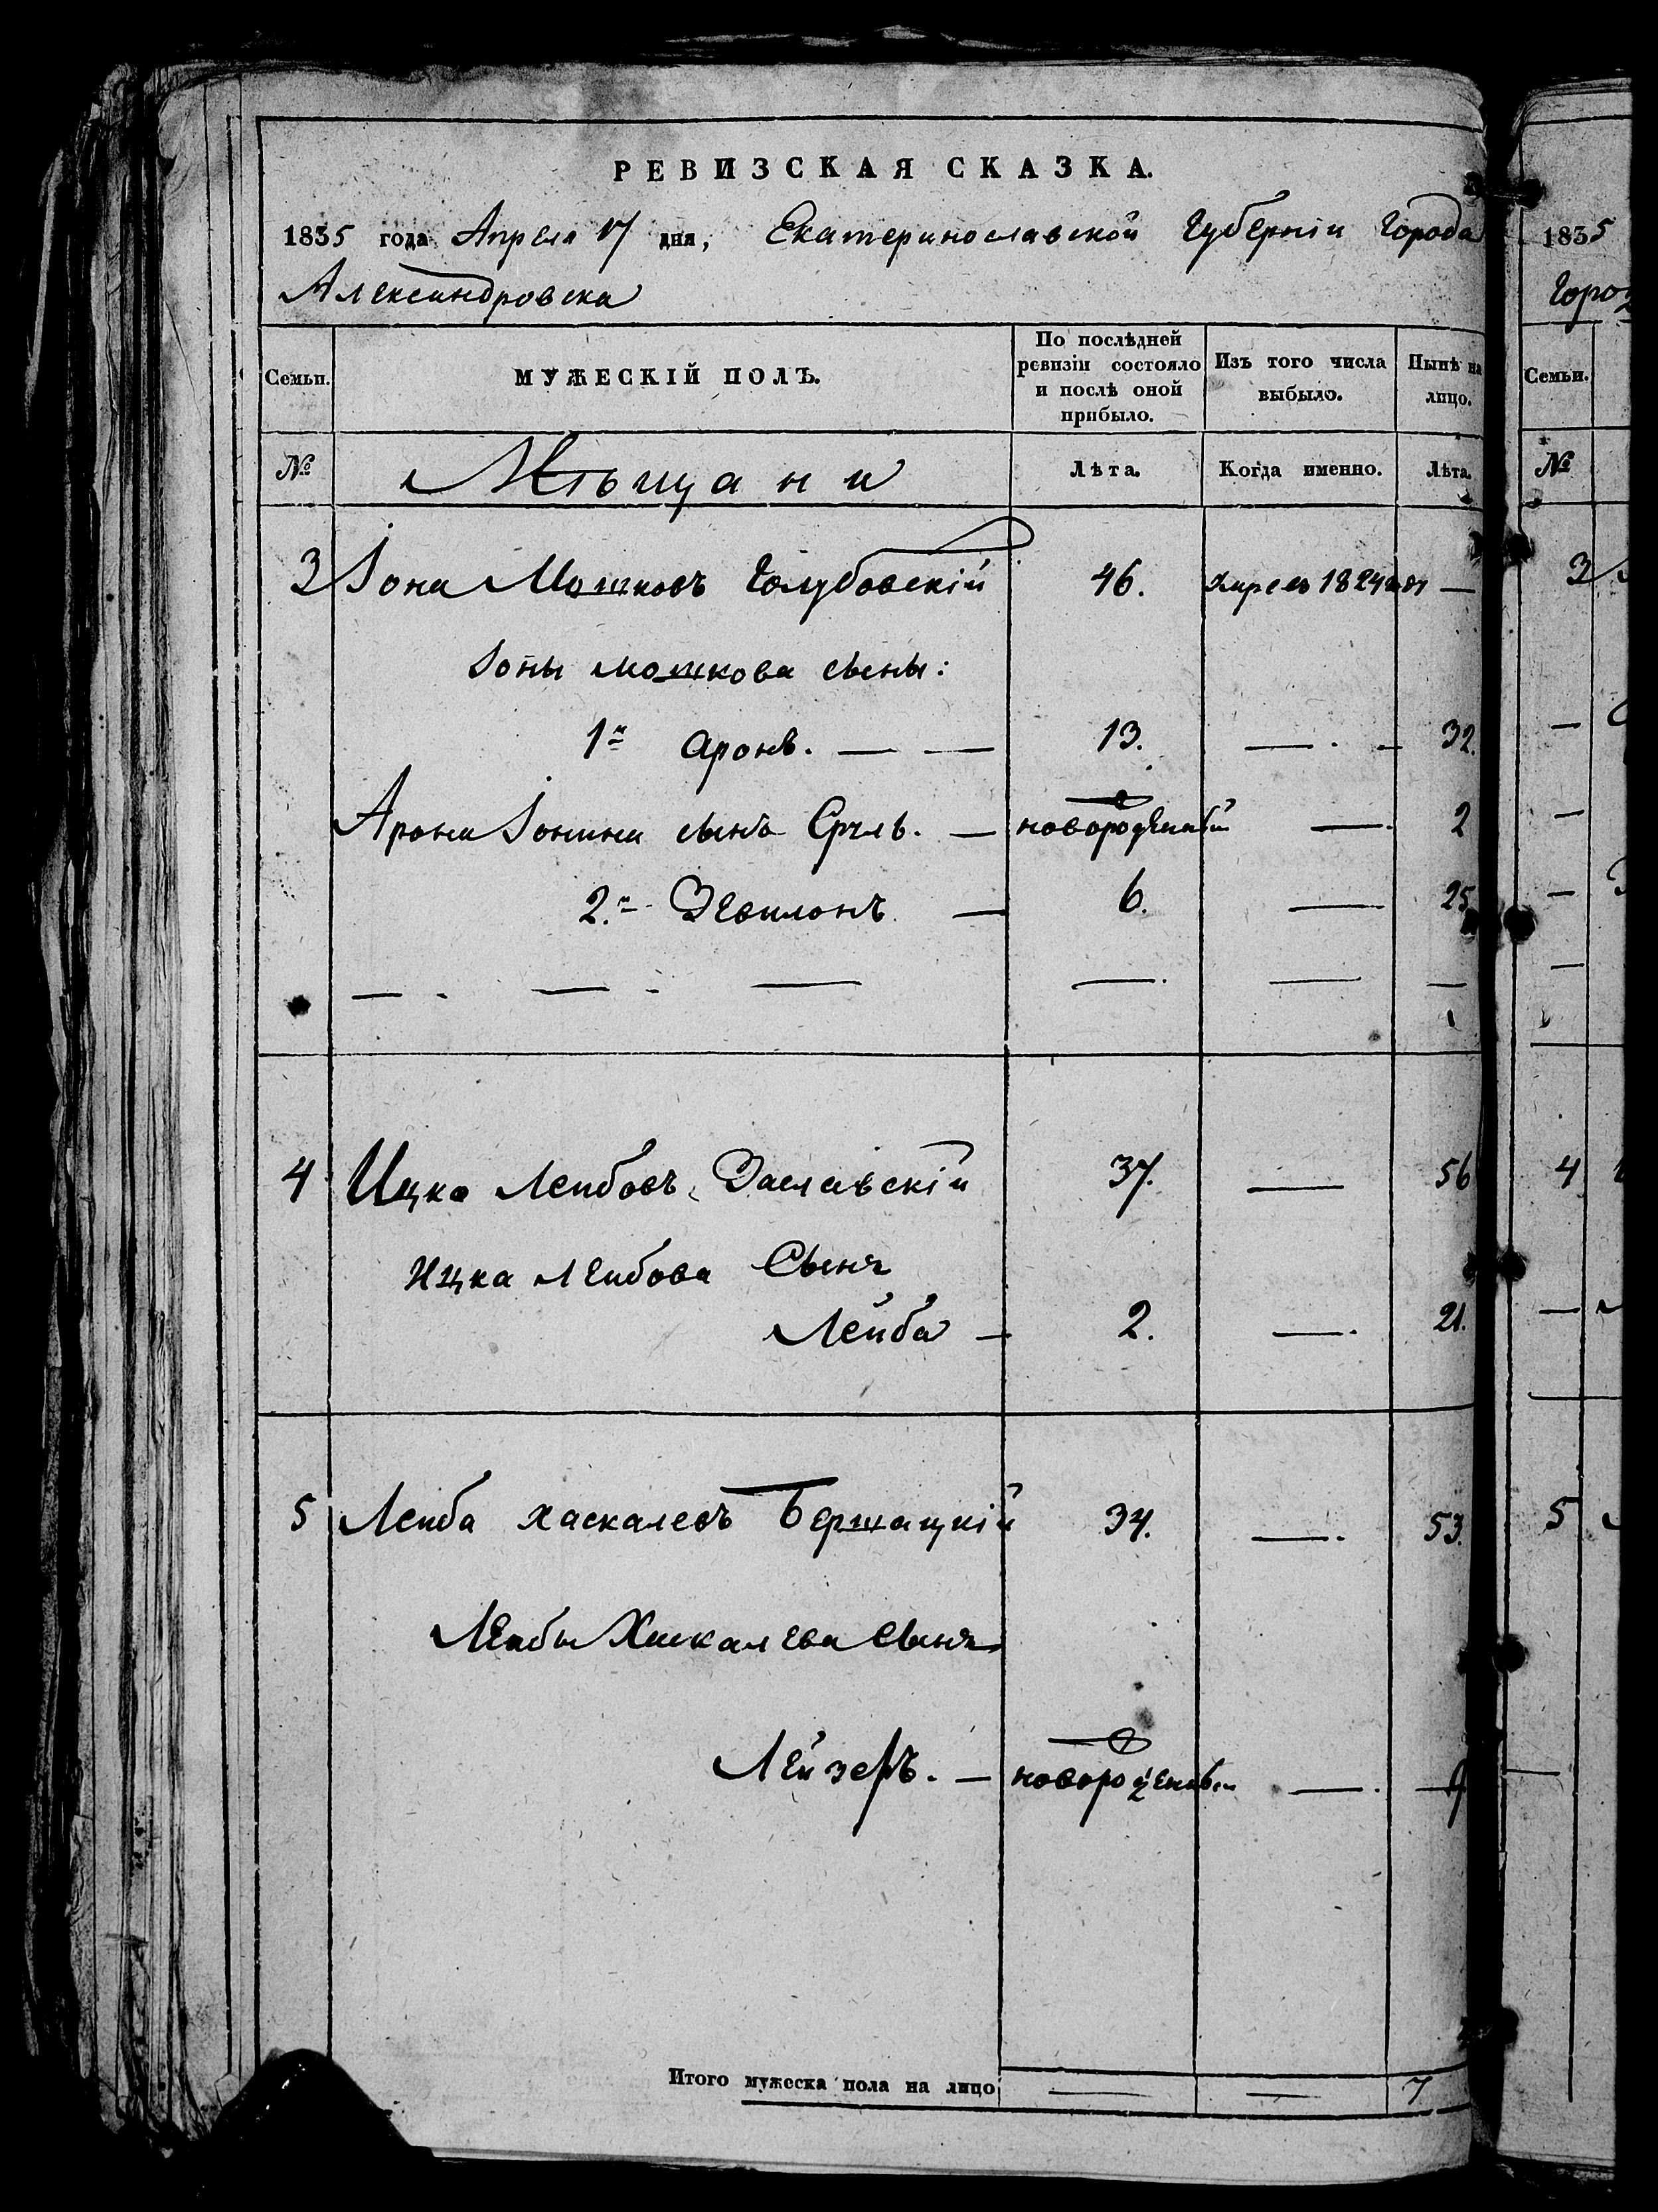 РЕВИЗСКАЯ СКАЗКА.
1835 года Апреля 17 дня, Екатеринославской Губерніи Города
Александровска
Семьи. МУЖЕСКІЙ ПОЛЪ. По послѣдней ревизіи состояло и послѣ оной прибыло. Изъ того числа выбыло. Нынѣ на лицо.
№ Мѣщани Лѣта. Когда именно. Лѣта.
3 Іона Мошковъ Голубовскій 46. 1824 —
Іоны мошкова сыны:
1й Аронъ. — — 13. — . – 32.
Арона Іонина сынъ Сруль. — новорожденный — 2
2.й — 6. — 25
— - — - — — . — —
4 Ицка Леибовъ Заславскій 37. — 56
Ицка Леибова Сынъ
Лейба — 2. — . 21.
5 Леиба Хаскалевъ Бершацкій 34. — . 53.
Леибы Хаскалева Сынъ
Лейзеръ. — новорожденный — .
Итого мужеска пола на лицо — — 7
1835
Горо
Семьи.
№
3
4
5